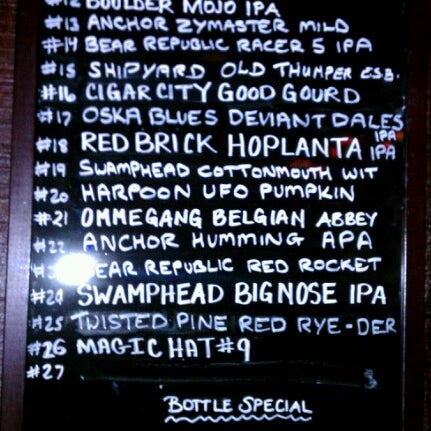 #12 BOULDER MOJO IPA
#13 ANCHOR ZYMASTER MILD
#14 BEAR REPUBLIC RACER 5 IPA
#15 SHIPYARD OLD THUMPER ESB.
#16 CIGAR CITY GOOD GOURD
#17 OSKA BLUES DEVIANT DALES IPA
#18 RED BRICK HOPLANTA IPA
#19 SWAMPHEAD COTTONMOUTH WIT
#20 HARPOON UFO PUMPKIN
#21 OMMEGANG BELGIAN ABBEY
#22 ANCHOR HUMMING APA
BEAR REPUBLIC RED ROCKET
#24 SWAMPHEAD BIGNOSE IPA
#25 TWISTED PINE RED RYE-DER
#26 MAGIC HAT #9
#27
BOTTLE SPECIAL